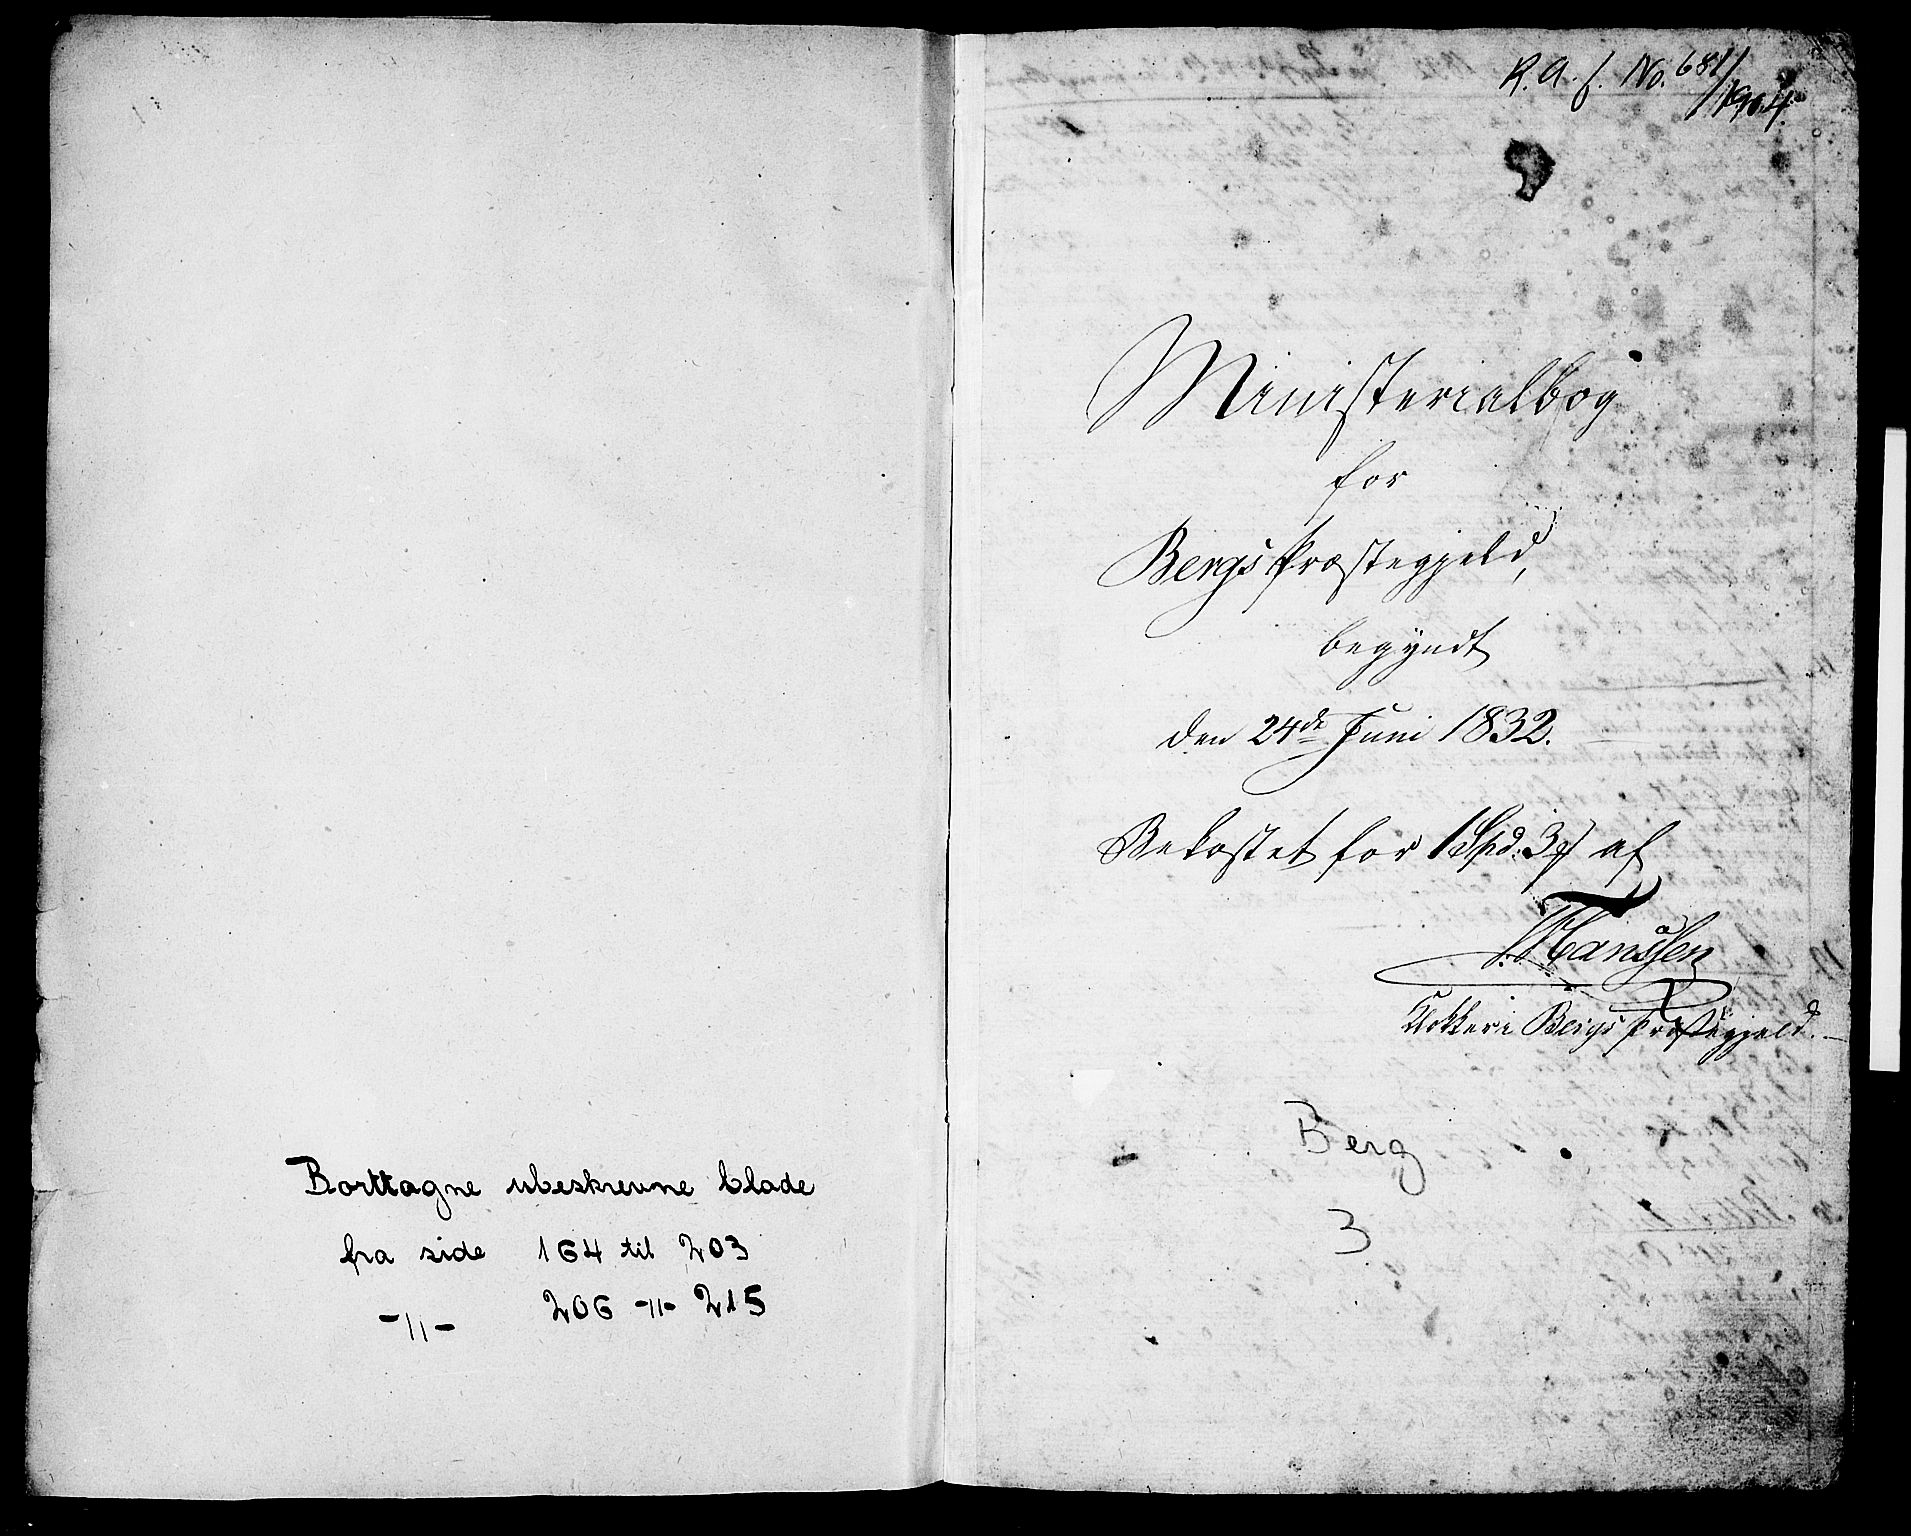 Borttagne ubeskrevne blade
fra side 164 til 203
-"- 206 -"- 215
R.A. f. No. 681/1904.
Ministerialbog
for
Bergs Præstegjeld,
begyndt
den 24de Juni 1832.
Bekostet for 1 Spd: 3 af
Hanssen
Klokker i Bergs Præstegjeld.
Berg
3